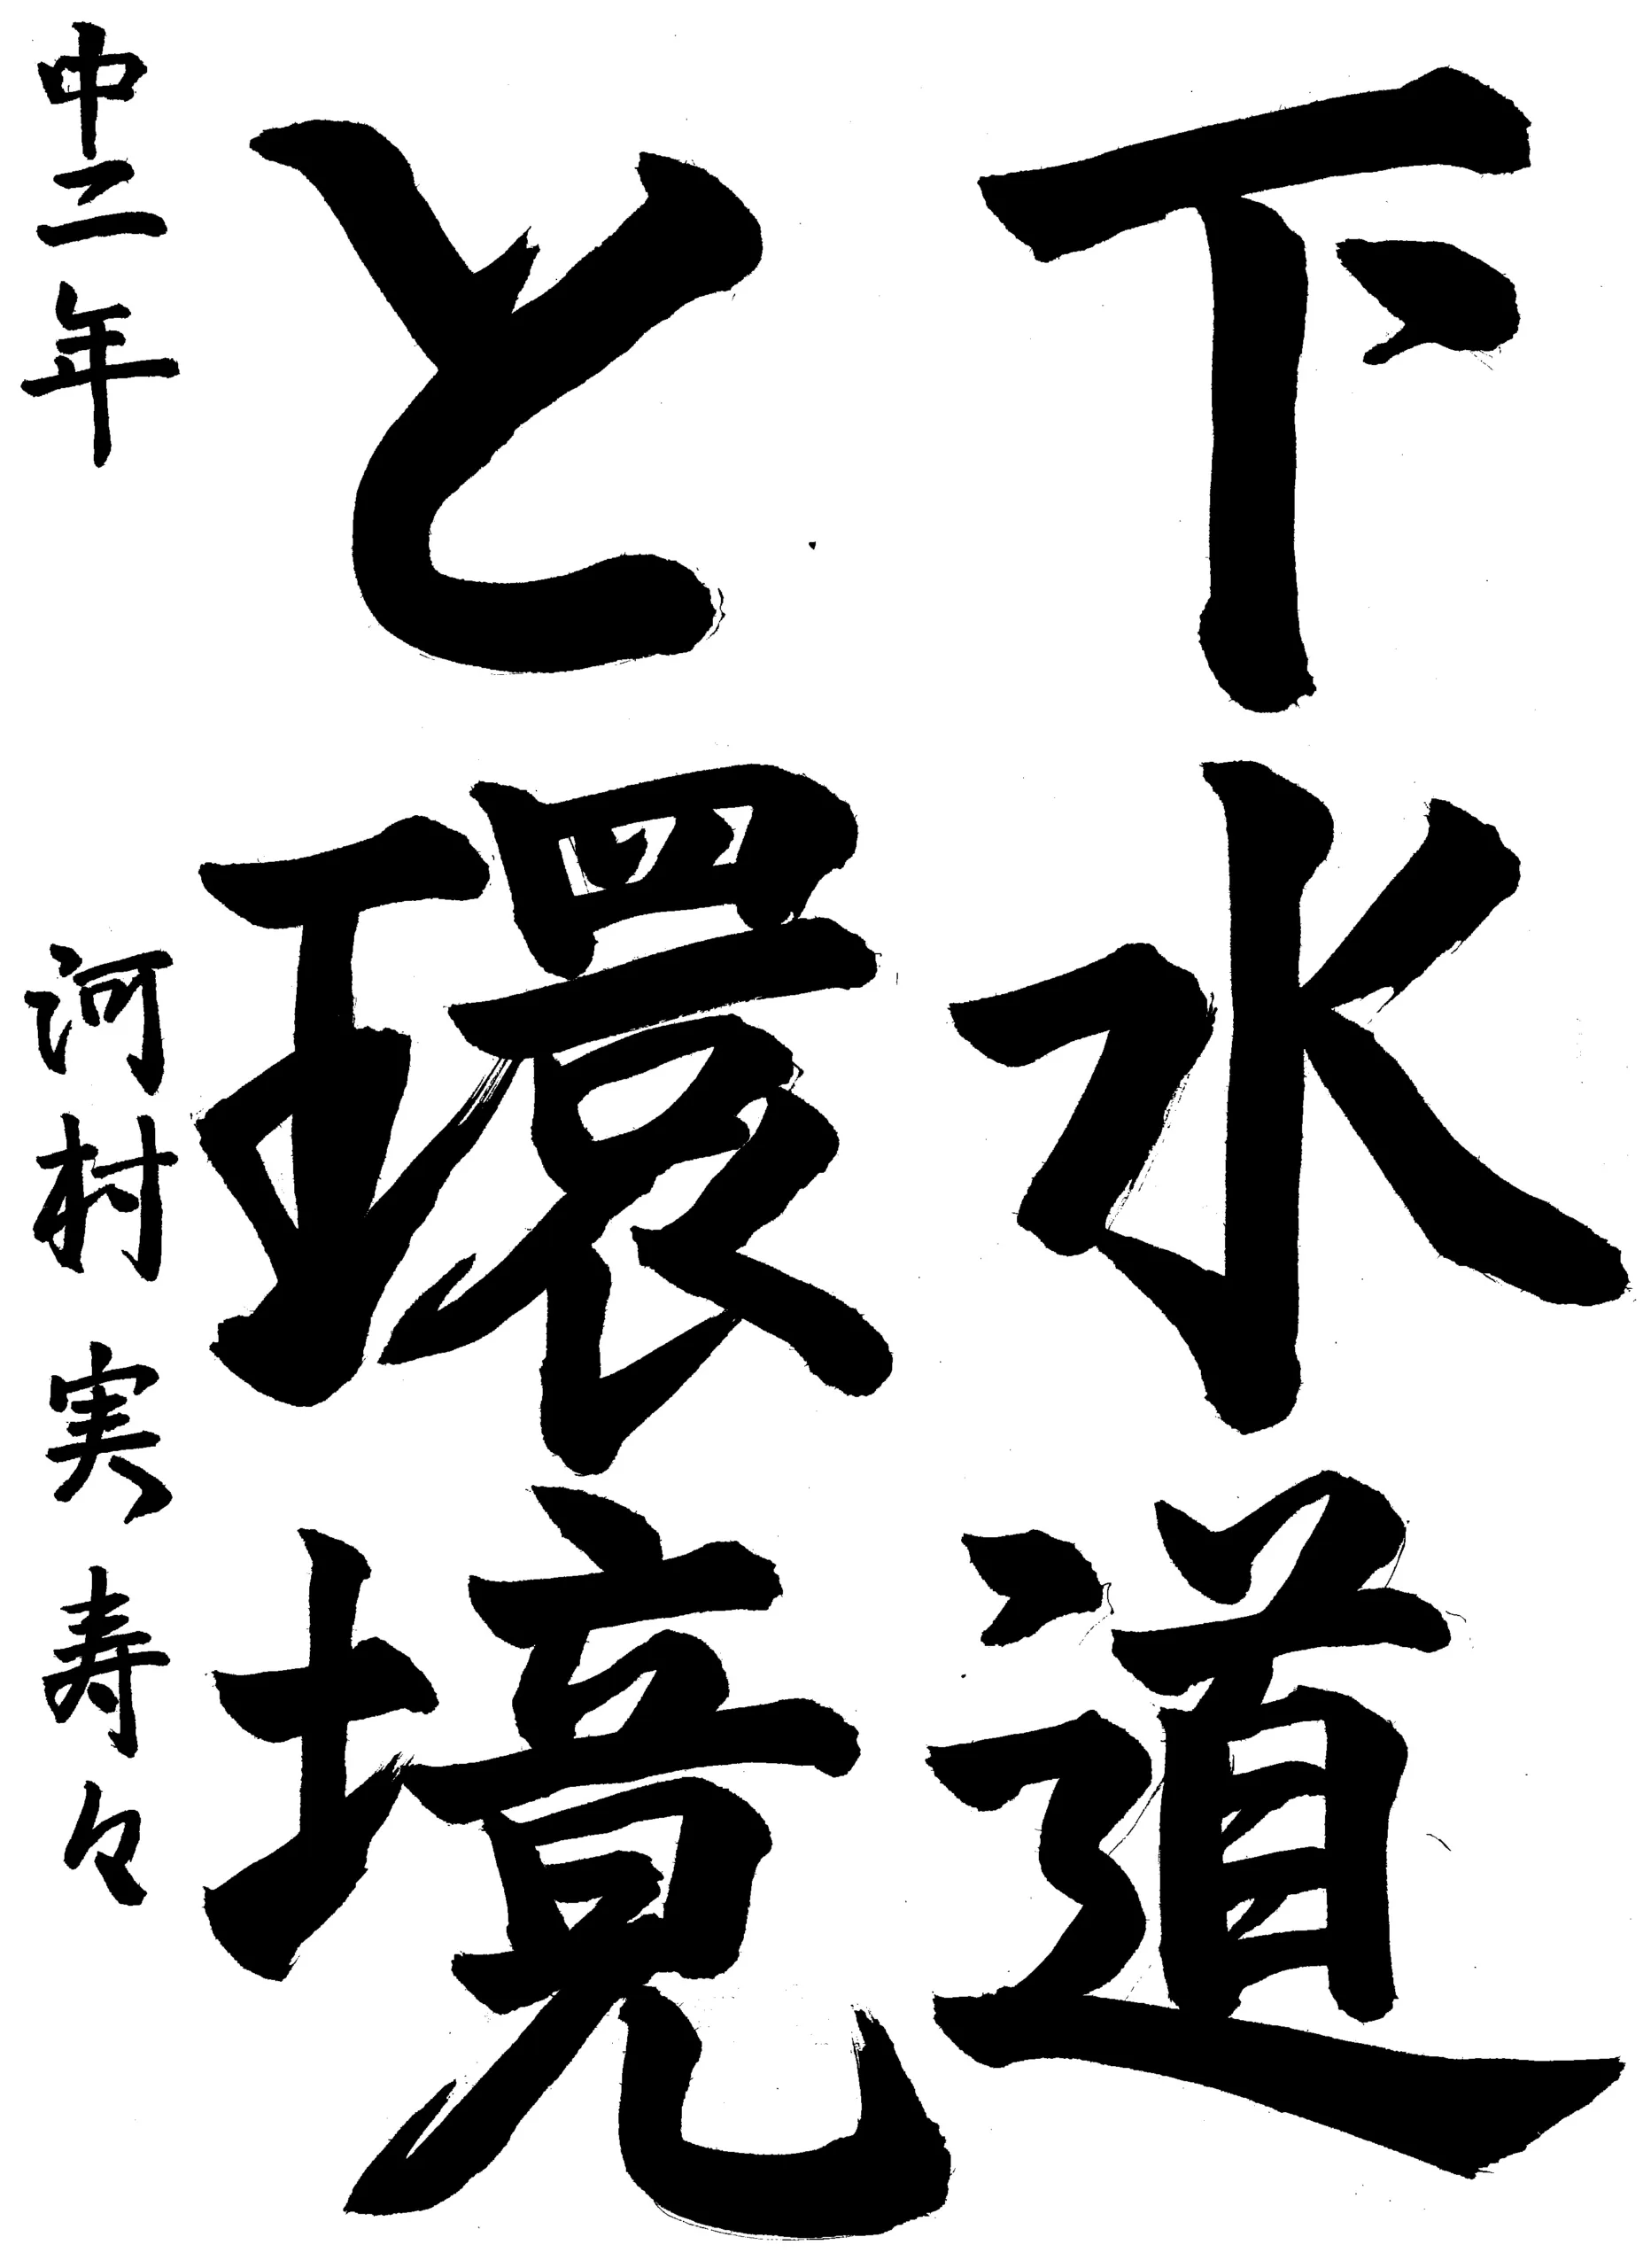 下水道
と環境
中三年 河村実寿々